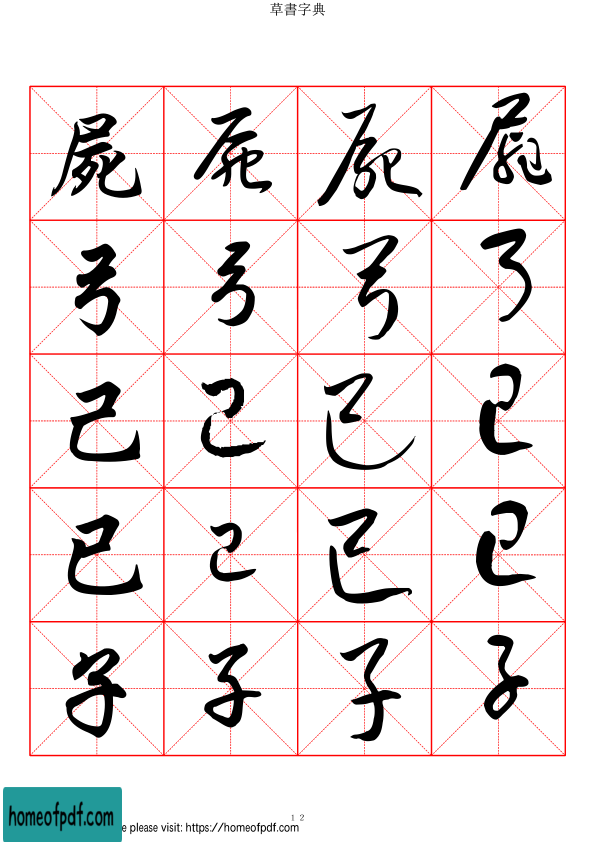 草書字典
屍 屍 屍 屍
弓 弓 弓 弓
己 己 己 己
已 已 已 已
子 子 子 子
12
homeofpdf.com
e please visit: https://homeofpdf.com